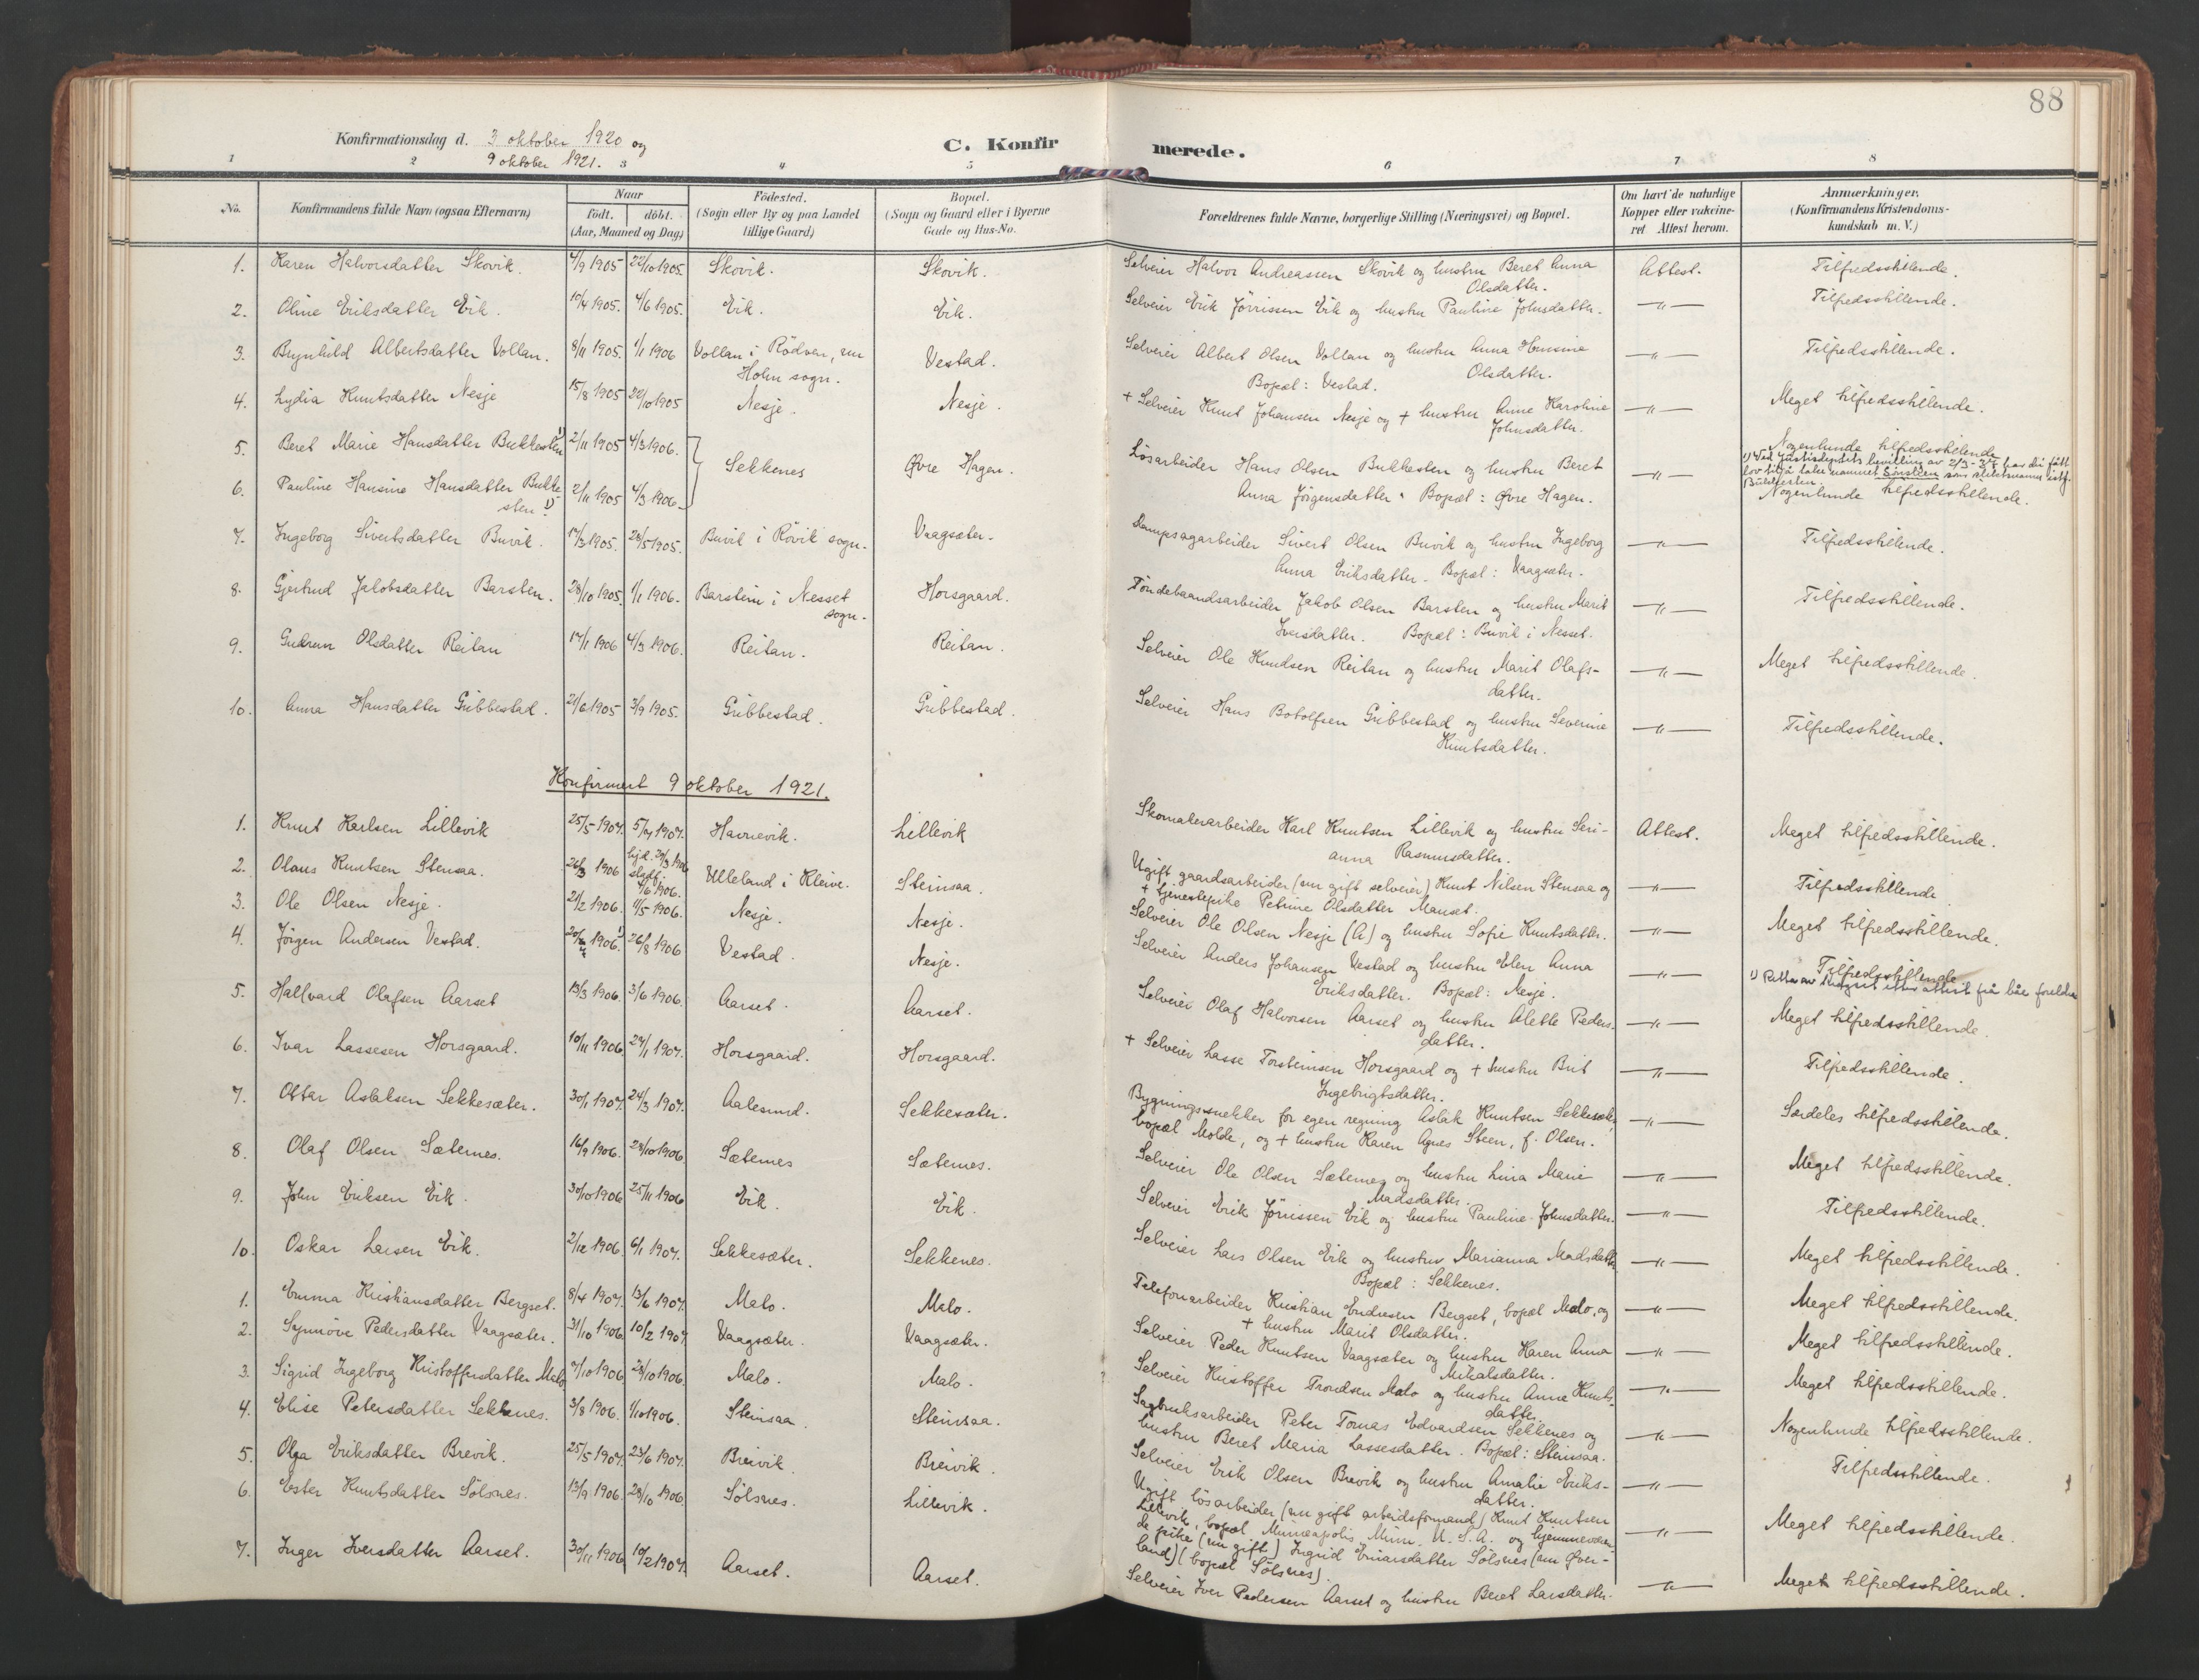 88
Konfirmationsdag d. 3 oktober 1920 og
9 oktober 1921.
C. Konfirmerede.
1 2 3 4 5 6 7 8
No.
Konfirmandens fulde Navn (ogsaa Efternavn)
Naar
født. døbt.
(Aar, Maaned og Dag)
Fødested.
(Sogn eller By og paa Landet
tillige Gaard)
Bopæl.
(Sogn og Gaard eller i Byerne
Gade og Hus-No.
Forældrenes fulde Navne, borgerlige Stilling (Næringsvei) og Bopæl.
Om havt de naturlige
Kopper eller vakcine-
ret Attest herom.
Anmærkninger.
(Konfirmandens Kristendoms-
kundskab m. V.)
1. Karen Halvorsdatter Skovik. 4/9 1905 22/10 1905. Skovik. Skovik. Selveier Halvor Andreassen Skovik og hustru Beret Anna Attest. Tilfredsstillende.
Olsdatter.
2. Oline Eriksdatter Eik. 10/4 1905. 4/6 1905. Eik. Eik. Selveier Erik Jørrissen Eik og hustru Pauline Johnsdatter. —"— Tilfredsstillende.
3. Brynhild Albertsdatter Vollan. 8/11 1905. 1/1 1906 Vollan i Rödven, nu Vestad. Selveier Albert Olsen Vollan og hustru Anna Hansine —"— Tilfredsstillende.
Holm sogn. Olsdatter.
Bopæl: Vestad.
4. Lydia Knutsdatter Nesje 15/8 1905 22/10 1905 Nesje. Nesje. + Selveier Knut Johansen Nesje og + hustru Anne Karoline —"— Meget tilfredsstillende.
Johnsdatter.
5. Beret Marie Hansdatter Bukkesten 1) 2/11 1905 4/3 1906. Sekkenes Øvre Hagen. Løsarbeider Hans Olsen Bukkesten og hustru Beret —"— Nogenlunde tilfredsstillende
1) Ved Justisdeptets bevilling av 2/3- har de fått
lov til å take namnet Sonsteen som slektsnamn istf.
Bukkesten.
6. Pauline Hansine Hansdatter Bukke- 2/11 1905 4/3 1906. Anna Jörgensdatter. Bopæl: Øvre Hagen. Nogenlunde tilfredsstillende.
sten 1)
7. Ingeborg Sivertsdatter Buvik. 17/3 1905. 28/5 1905. Buvik i Rövik sogn. Vaagsæter. Dampsagarbeider Sivert Olsen Buvik og hustru Ingeborg —"— Tilfredsstillende.
Anna Eriksdatter. Bopæl: Vaagsæter.
8. Gjertrud Jakobsdatter Barsten. 28/10 1905. 1/1 1906. Barstein i Nesset Horsgaard. Töndebaandsarbeider Jakob Olsen Barsten og hustru Marit —"— Tilfredsstillende.
sogn. Iversdatter. Bopæl: Buvik i Nesset.
9. Gudrun Olsdatter Reitan 17/1 1906 4/3 1906. Reitan. Reitan. Selveier Ole Knudsen Reitan og hustru Marit Olafs- —"— Meget tilfredsstillende.
datter.
10. Anna Hansdatter Gribbestad. 21/6 1905 3/9 1905. Gribbestad. Gribbestad. Selveier Hans Botolfsen Gribbestad og hustru Severine —"— Tilfredsstillende.
Knutsdatter.
Konfirmert 9 oktober 1921.
1. Knut Karlsen Lillevik 25/5 1907. 5/7 1907. Havnevik. Lillevik Skomakerarbeider Karl Knutsen Lillevik og hustru Seri- Attest. Meget tilfredsstillende.
anna Rasmusdatter.
2. Olaus Knutsen Stensaa. 26/3 1906 hjd. 29/3 1906 Ulleland i Kleive. Steinsaa. Ugift gaardsarbeider (nu gift selveier) Knut Nilsen Stensaa og —"— Tilfredsstillende
stadf. 4/6 1906. + tjenestepike Petrine Olsdatter Manset.
3. Ole Olsen Nesje. 21/2 1906. 11/5 1906. Nesje. Nesje. Selveier Ole Olsen Nesje (A) og hustru Sofie Knutsdatter. —"— Meget tilfredsstillende.
4. Jörgen Andersen Vestad. 1906. 1) 26/8 1906 Vestad. Nesje. Selveier Anders Johansen Vestad og hustru Elen Anna —"— Tilfredsstillende
Eriksdatter. Bopæl: Nesje. 1) Retta av etter attest frå båe foreldra
5. Hallvard Olafsen Aarset 13/3 1906. 3/6 1906. Aarset. Aarset. Selveier Olaf Halvorsen Aarset og hustru Alette Peders- —"— Meget tilfredsstillende.
datter.
6. Ivar Lassesen Horsgaard. 10/11 1906. 27/1 1907. Horsgaard. Horsgaard. + Selveier Lasse Torsteinsen Horsgaard og + hustru Brit —"— Tilfredsstillende.
Ingebrigtsdatter.
7. Ottar Aslaksen Sekkesæter. 30/1 1907. 24/3 1907. Aalesund. Sekkesæter. Bygningssnekker for egen regning Aslak Knutsen Sekkesæter, —"— Særdeles tilfredsstillende.
bopæl Molde, og + hustru Karen Agnes Steen, f. Olsen.
8. Olaf Olsen Sæternes. 16/9 1906. 28/10 1906. Sæternes Sæternes. Selveier Ole Olsen Sæternes og hustru Lina Marie —"— Meget tilfredsstillende.
Madsdatter.
9. John Eriksen Eik. 30/10 1906 25/11 1906 Eik. Eik. Selveier Erik Jørrissen Eik og hustru Pauline Johnsdatter. —"— Tilfredsstillende.
10. Oskar Larsen Eik. 2/12 1906. 6/1 1907. Sekkesæter. Sekkenes. Selveier Lars Olsen Eik og hustru Marianna Madsdatter —"— Meget tilfredsstillende.
Bopæl: Sekkenes.
1. Emma Kristiansdatter Bergset. 8/4 1907. 13/6 1907. Malo. Malo. Telefonarbeider Kristian Endresen Bergset, bopæl Malo, og —"— Meget tilfredsstillende.
+ hustru Marit Olsdatter.
2. Synnöve Pedersdatter Vaagsæter. 31/10 1906 10/2 1907 Vaagsæter. Vaagsæter. Selveier Peder Knutsen Vaagsæter og hustru Karen Anna —"— Meget tilfredsstillende.
Mikalsdatter.
3. Sigrid Ingeborg Kristoffersdatter Malo 7/10 1906 28/10 1906. Malo. Malo. Selveier Kristoffer Trondsen Malo og hustru Anne Knuts- —"— Meget tilfredsstillende.
datter.
4. Elise Petersdatter Sekkenes. 3/8 1906. 1/10 1906. Steinsaa. Steinsaa. Sagbruksarbeider Peter Tomas Edvardsen Sekkenes og —"— Nogenlunde tilfredsstillende.
hustru Beret Maria Lassesdatter. Bopæl: Steinsaa.
5. Olga Eriksdatter Brevik. 25/5 1907. 23/6 1907. Breivik. Breivik. Selveier Erik Olsen Brevik og hustru Amalie Eriks- —"— Tilfredsstillende.
datter.
6. Ester Knutsdatter Sölsnes. 13/9 1906. 28/10 1906. Sölsnes. Lillevik. Ugift lösarbeider (nu gift arbeidsformand) Knut Knutsen —"— Meget tilfredsstillende.
Lillevik, bopæl Minneapolis, Minn. U.S.A. og hjemmeværen-
de pike (nu gift) Ingrid Einarsdatter Sölsnes (nu Øver-
land) (bopæl Sölsnes).
7. Inger Iversdatter Aarset. 30/11 1906 10/2 1907. Aarset. Aarset. Selveier Iver Pedersen Aarset og hustru Beret Larsdatter. —"— Meget tilfredsstillende.